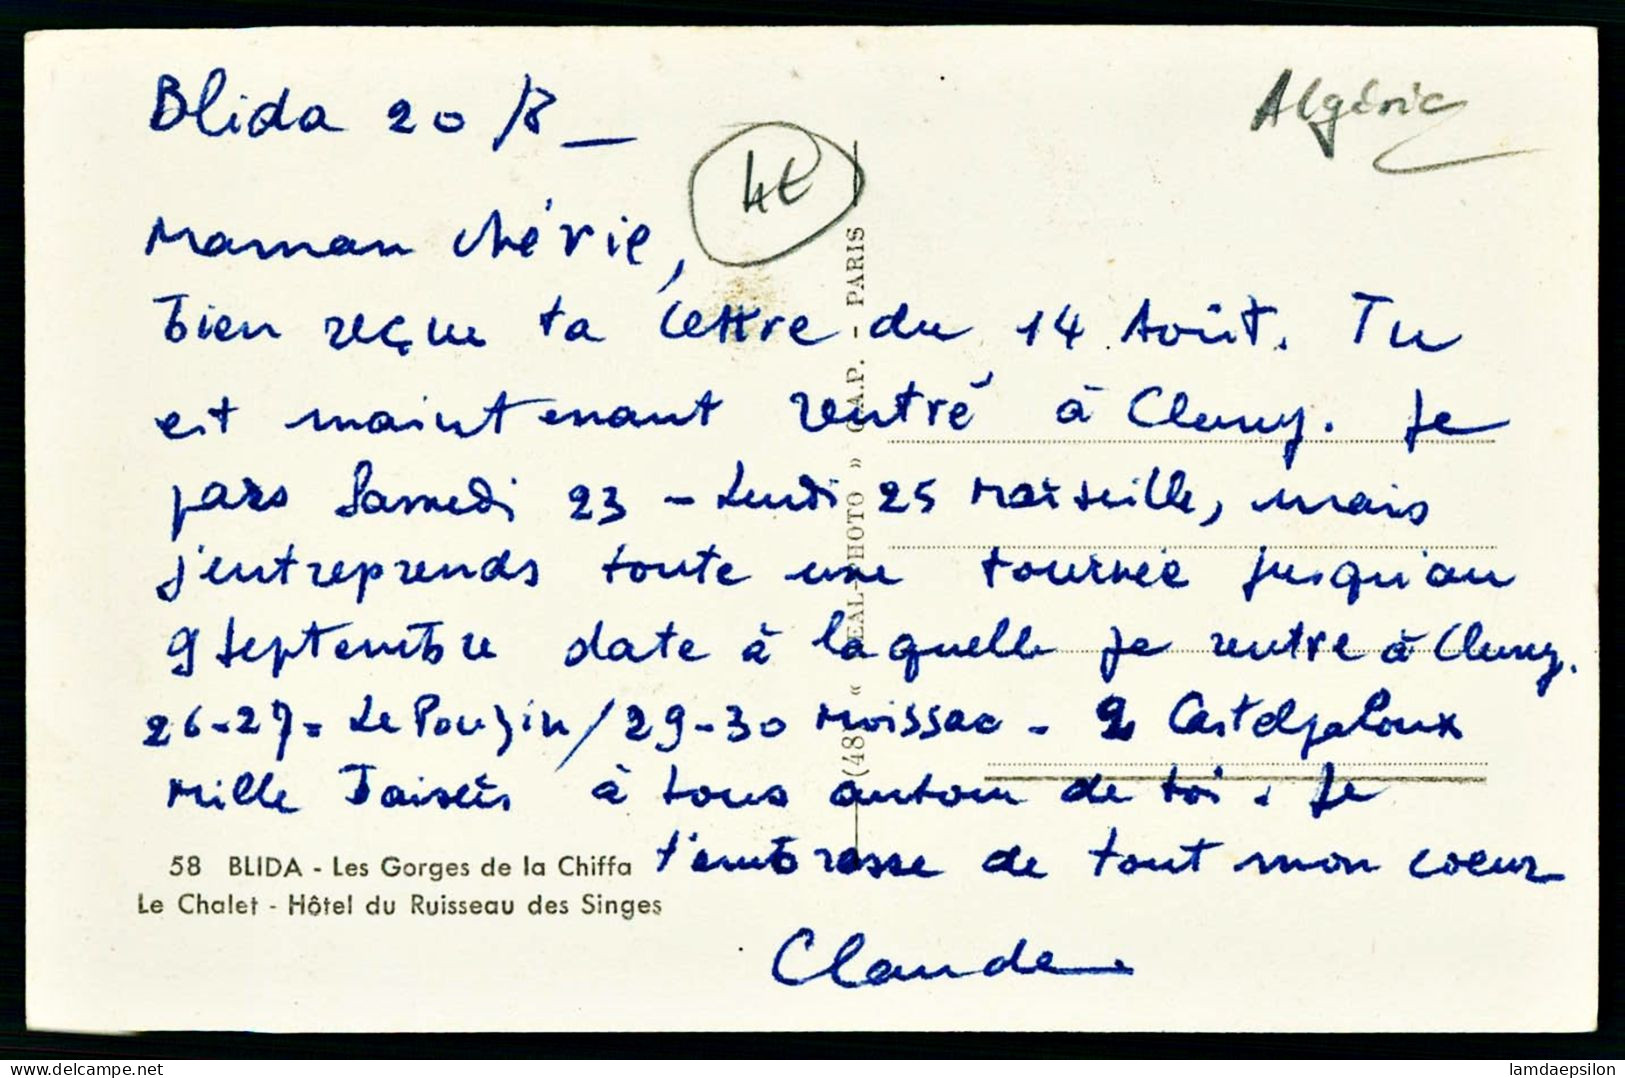 Blida 20/8 _
Algérie
4€
Maman chérie,
bien reçue ta lettre du 14 Août. Tu
est maintenant rentré à Cluny. Je
pars Samedi 23 - Lundi 25 Marseille, mais
j'entreprends toute une tournée jusqu'au
9 Septembre date à laquelle je rentre à Cluny.
26-27 = Le Pouzin / 29-30 Moissac - 2 Casteljaloux
Mille baisers à tous autour de toi. Je
t'embrasse de tout mon coeur
Claude
58 BLIDA - Les Gorges de la Chiffa
Le Chalet - Hôtel du Ruisseau des Singes
« REAL-PHOTO » C.A.P. - PARIS
delcampe.net
lamdaepsilon